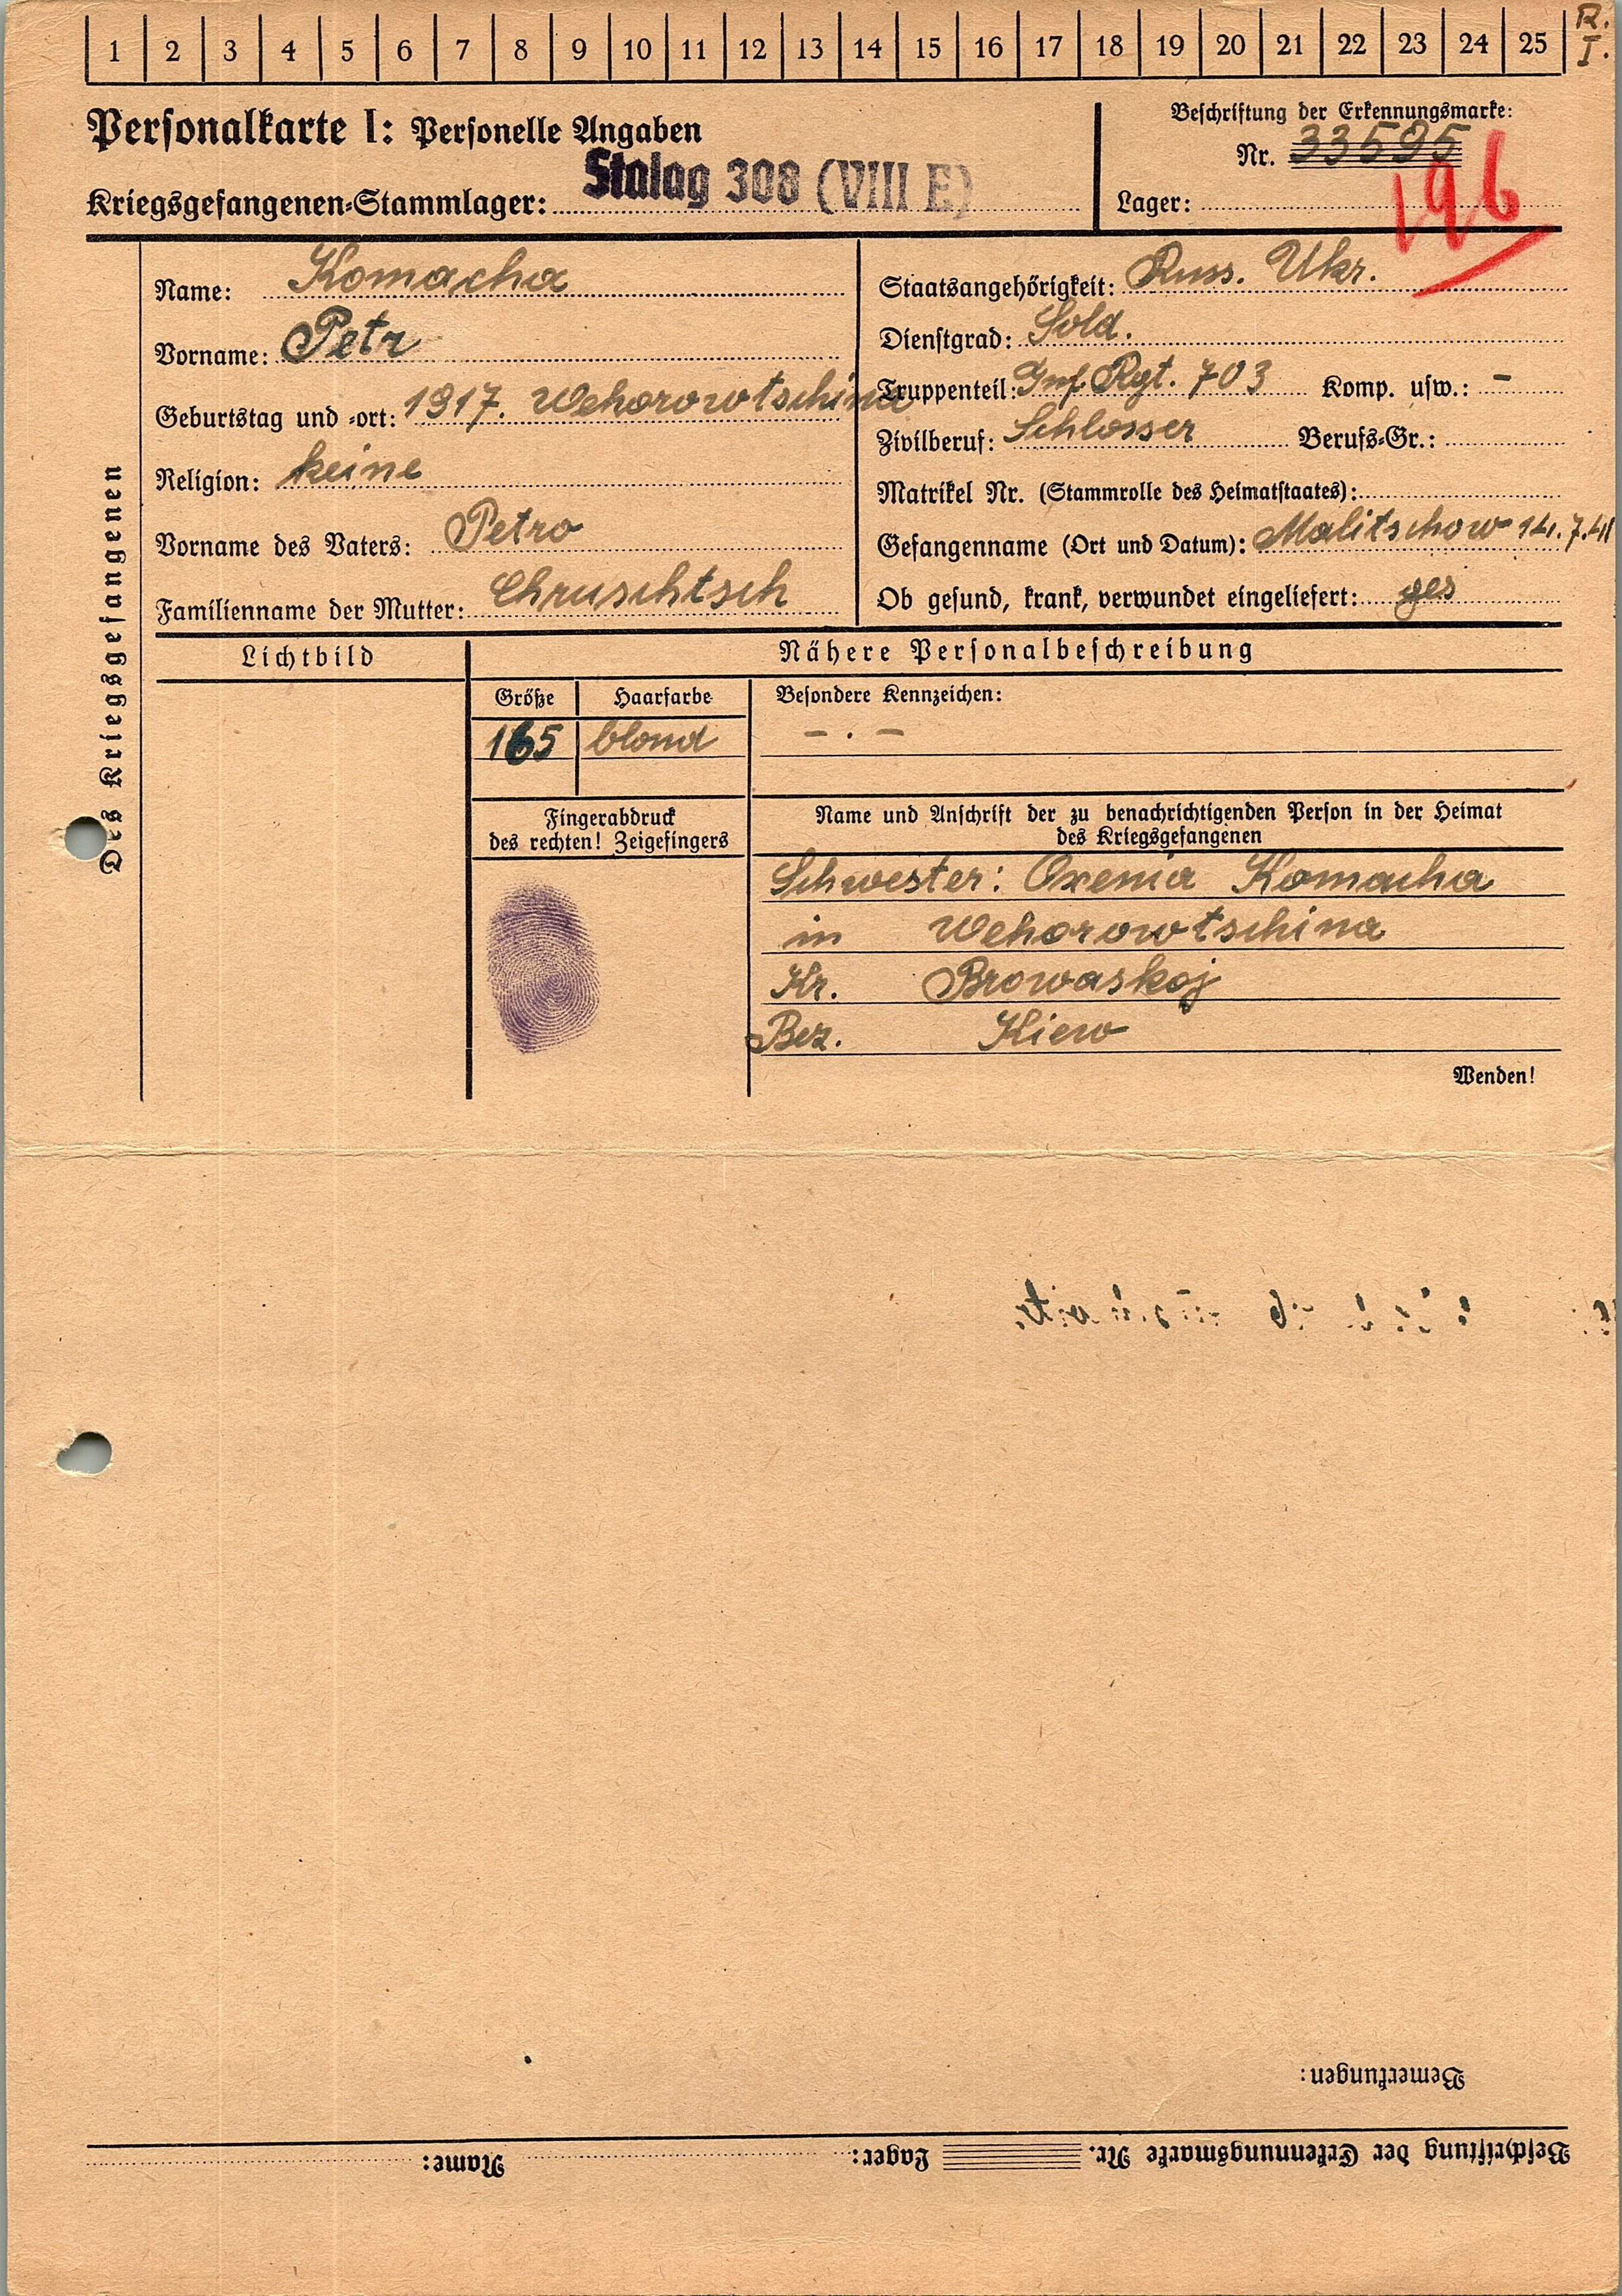 1 2 3 4 5 6 7 8 9 10 11 12 13 14 15 16 17 18 19 20 21 22 23 24 25 R. I.
Personalkarte I: Personelle Angaben
Beschriftung der Erkennungsmarke:
Nr. 33595
Kriegsgefangenen-Stammlager: Stalag 308 (VIII E)
Lager:
196
Des Kriegsgefangenen
Name: Komacha
Vorname: Petr
Geburtstag und -ort: 1917. Wehorowtschina
Religion: keine
Vorname des Vaters: Petro
Familienname der Mutter: Chruschtsch
Staatsangehörigkeit: Russ. Ukr.
Dienstgrad: Sold.
Truppenteil: Inf. Rgt. 703 Komp. usw.: -
Zivilberuf: Schlosser Berufs-Gr.:
Matrikel Nr. (Stammrolle des Heimatstaates):
Gefangenname (Ort und Datum): Malitschow 14.7.41
Ob gesund, krank, verwundet eingeliefert: ges
Lichtbild
Nähere Personalbeschreibung
Größe Haarfarbe Besondere Kennzeichen:
165 blond - . -
Fingerabdruck
des rechten! Zeigefingers
Name und Anschrift der zu benachrichtigenden Person in der Heimat
des Kriegsgefangenen
Schwester: Oxenia Komacha
in Wehorowtschina
Kr. Browaskoj
Bez. Kiew
Wenden!
Bemerkungen:
Beschriftung der Erkennungsmarke Nr. Lager: Name: